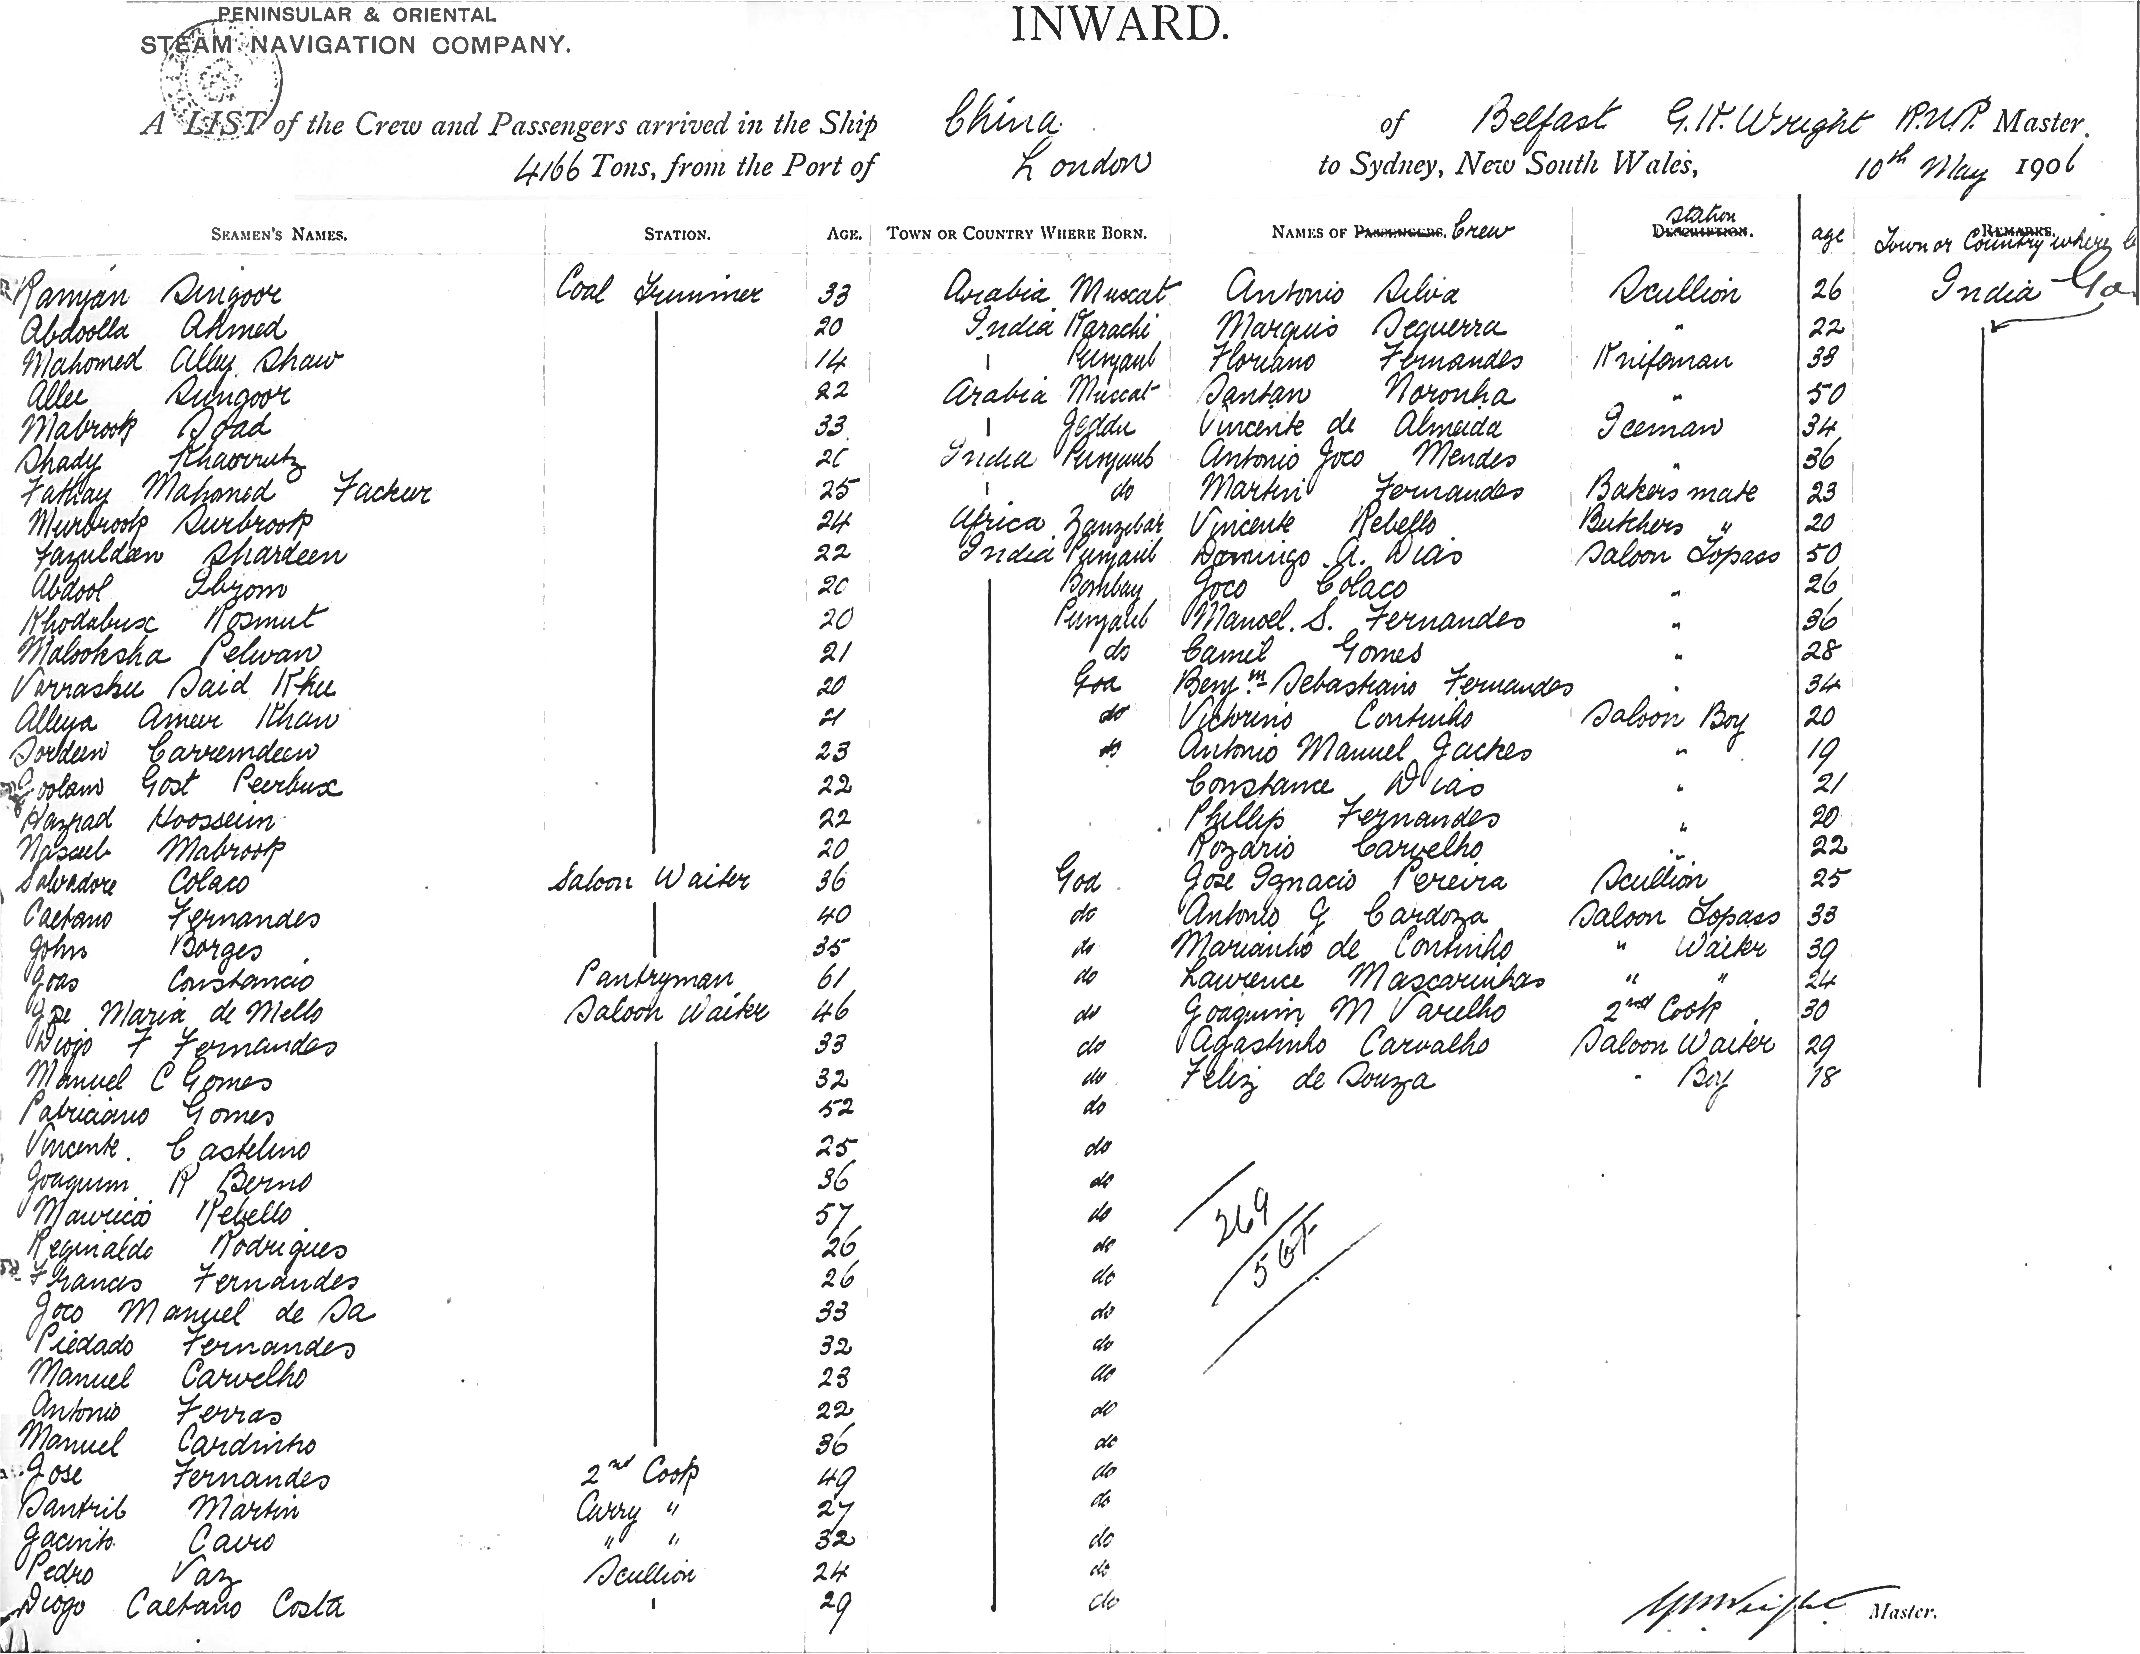 PENINSULAR & ORIENTAL
STEAM NAVIGATION COMPANY.
INWARD.
A LIST of the Crew and Passengers arrived in the Ship China of Belfast G.K. Wright R.N.R. Master.
4166 Tons, from the Port of London to Sydney, New South Wales, 10th May 1906
SEAMEN'S NAMES. STATION. AGE. TOWN OR COUNTRY WHERE BORN. NAMES OF PASSENGERS. Crew Station DESCRIPTION. age REMARKS. Town or Country where
Ramjan Sungoor Coal Trimmer 33 Arabia Muscat Antonio Silva Scullion 26 India Goa
Abdoolla Ahmed 20 India Karachi Marquis Sequerra " 22
Mahomed Alley Shaw 14 " Punjaub Floriano Fernandes Knifeman 38
Allee Sungoor 22 Arabia Muscat Santan Noronha " 50
Mabrook Soad 33 " Jeddu Vincente de Almeida Iceman 34
Shady Khawrutz 26 India Punjaub Antonio Joco Mendes " 36
Fathay Mahomed Fackur 25 " do Martin Fernandes Bakers mate 23
Murbrook Surbrook 24 Africa Zanzebar Vincente Rebello Butchers " 20
Fazuldeen Shardeen 22 India Punjaub Domingo A. Dias Saloon Topass 50
Abdool Ibzom 20 Bombay Joco Colaco " 26
Khodabux Rosmut 20 Punjaub Manoel. S. Fernandes " 36
Malooksha Pelwan 21 do Camil Gomes " 28
Varrashu Said Khu 20 Goa Benjm Sebastiano Fernandes " 34
Alleya Ameer Khan 21 do Victorino Continho Saloon Boy 20
Sordeen Carremdeen 23 do Antonio Manuel Jackes " 19
Goolam Gost Peerbux 22 Constance Dias " 21
Hazrad Hoossein 22 Phillip Fernandes " 20
Naseeb Mabrook 20 Rozario Carvelho " 22
Salvadore Colaco Saloon Waiter 36 Goa Jose Ignacio Pereira Scullion 25
Caetano Fernandes 40 do Antonio G Cardoza Saloon Topass 33
John Borges 35 do Marianho de Continho " Waiter 39
Joas Constancio Pantryman 61 do Lawrence Mascarinhas " " 24
Jose Maria de Mello Saloon Waiter 46 do Joaquim M Varelho 2nd Cook 30
Diogo F Fernandes 33 do Agastinho Carvalho Saloon Waiter 29
Manuel C Gomes 32 do Feliz de Souza " Boy 18
Patriciano Gomes 52 do
Vincente. Castelino 25 do
Joaquim R Berno 36 do
Mauricio Rebello 57 do
Reginaldo Rodrigues 26 do
Francis Fernandes 26 do
Joco Manuel de Sa 33 do
Piedado Fernandes 32 do
Manuel Carvelho 23 do
Antonio Ferras 22 do
Manuel Cardinho 36 do
Jose Fernandes 2nd Cook 49 do
Santrib Martin Curry " 27 do
Jacinto Cairo " " 32 do
Pedro Vaz Scullion 24 do
Diogo Caetano Costa " 29 do
269
567
G.K. Wright Master.